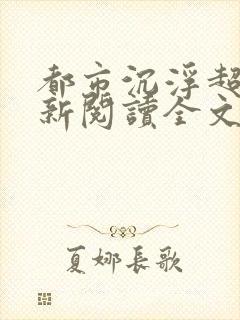 都市沉浮超
新閱讀全文
夏娜長歌